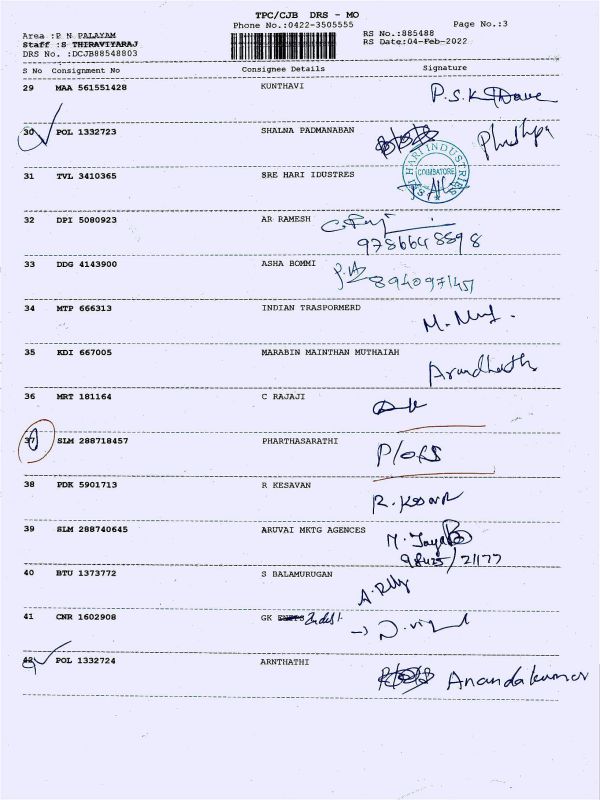 TPC/CJB DRS - MO
Phone No.:0422-3505555
Page No.:3
Area :P N PALAYAM
Staff :S THIRAVIYARAJ
DRS No. :DCJB88548803
RS No.:885488
RS Date:04-Feb-2022
S No Consignment No Consignee Details Signature
29 MAA 561551428 KUNTHAVI P.S.K
30 POL 1332723 SHALNA PADMANABAN
31 TVL 3410365 SRE HARI IDUSTRES
HARI INDUSTRIES
COIMBATORE
32 DPI 5080923 AR RAMESH
9786648898
33 DDG 4143900 ASHA BOMMI
8940971451
34 MTP 666313 INDIAN TRASPORMERD
35 KDI 667005 MARABIN MAINTHAN MUTHAIAH
36 MRT 181164 C RAJAJI
37 SLM 288718457 PHARTHASARATHI
38 PDK 5901713 R KESAVAN
39 SLM 288740645 ARUVAI MKTG AGENCES
40 BTU 1373772 S BALAMURUGAN
41 CNR 1602908 GK
42 POL 1332724 ARNTHATHI Anandakumar